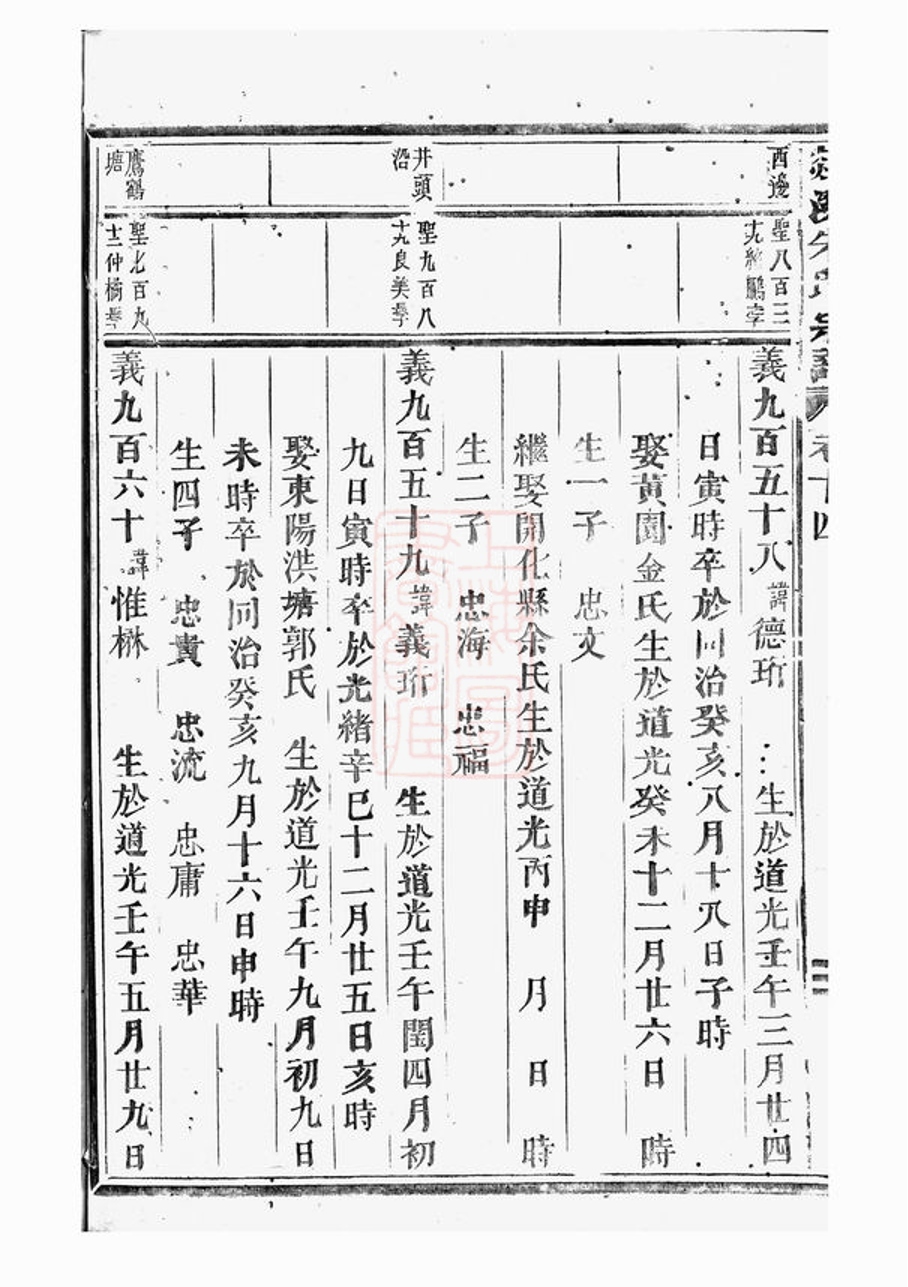 卷十四
西邊
聖八百三
義九百五十八 諱德珩 生於道光壬午三月廿四
日寅時卒於同治癸亥八月十八日子時
娶黃園金氏生於道光癸未十二月廿六日 時
生一子 忠文
繼娶開化縣余氏生於道光丙申 月 日 時
生二子 忠海 忠福
井頭
沿
聖九百八
十九良美學
義九百五十九諱義珩 生於道光壬午閏四月初
九日寅時卒於光緒辛巳十二月廿五日亥時
娶東陽洪塘郭氏 生於道光壬午九月初九日
未時卒於同治癸亥九月十六日申時
生四子 忠貴 忠流 忠庸 忠華
鷹鶴
塘
義九百六十諱惟楙 生於道光壬午五月廿九日